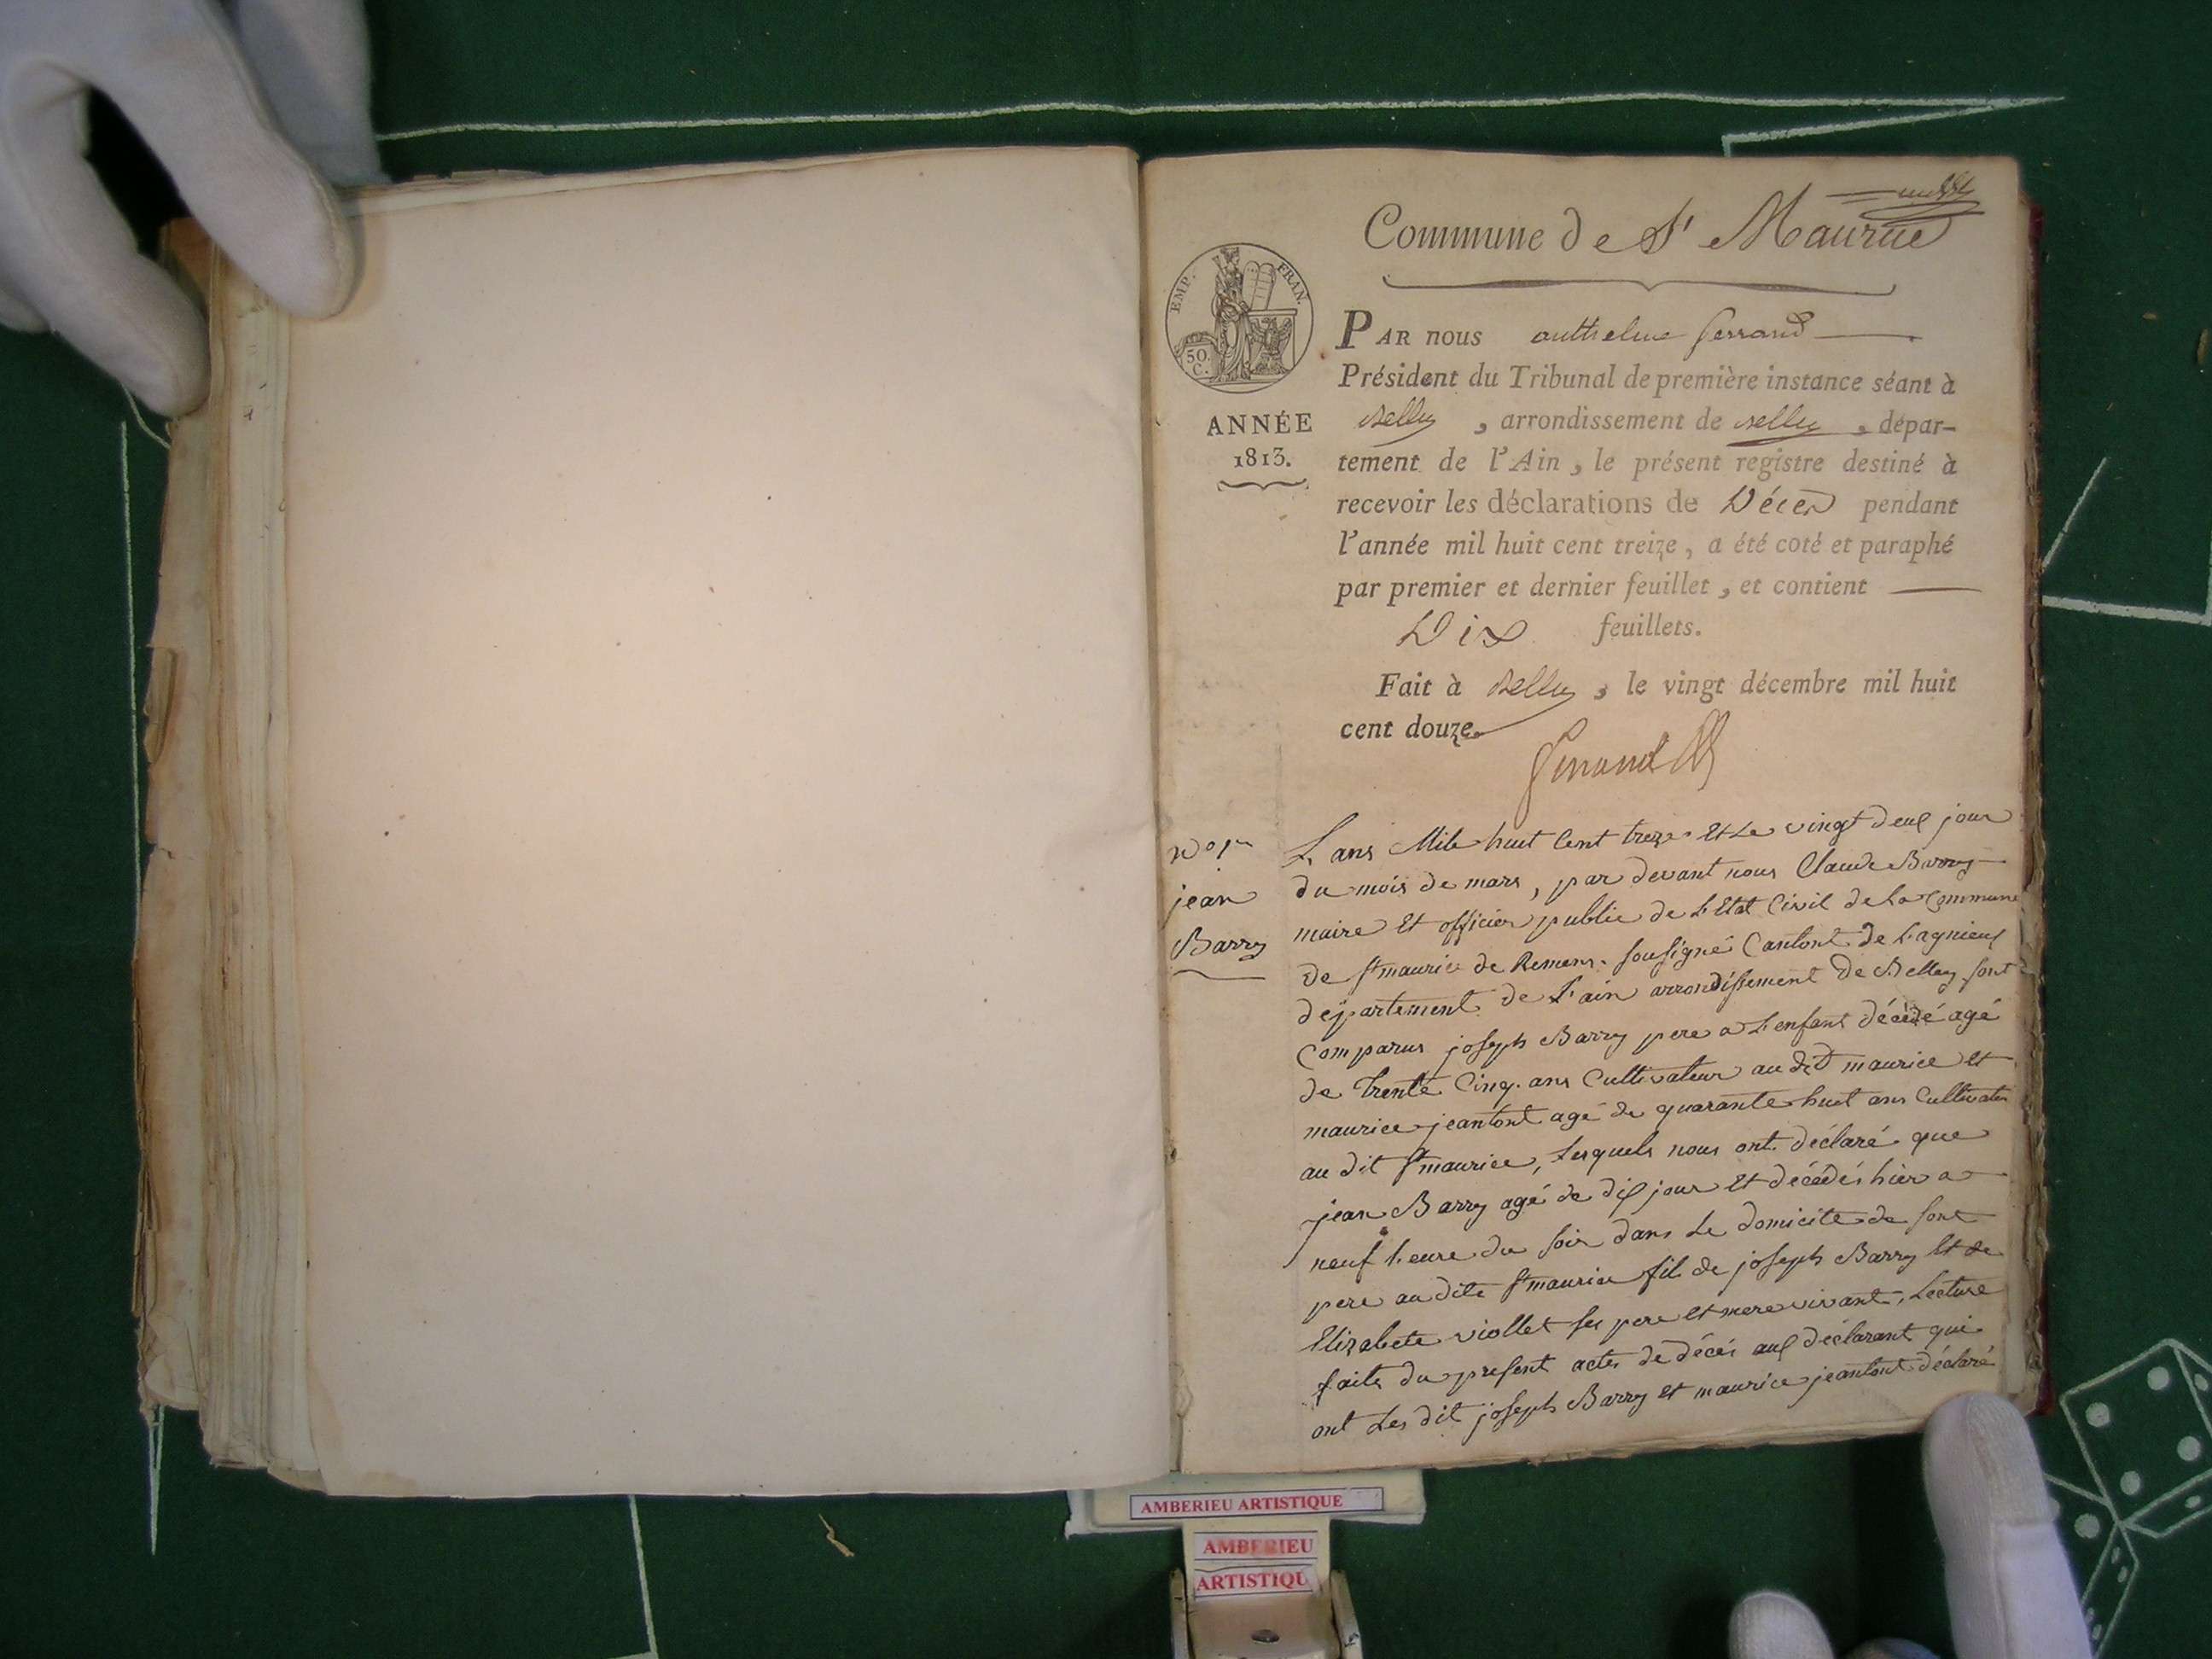 Commune de St Maurice
EMP. FRAN.
50.
C.
ANNÉE
1813.
PAR nous anthelme ferrand
Président du Tribunal de première instance séant à
Belley , arrondissement de Belley , dépar-
tement de l'Ain , le présent registre destiné à
recevoir les déclarations de Décès pendant
l'année mil huit cent treize , a été coté et paraphé
par premier et dernier feuillet , et contient
Dix feuillets.
Fait à Belley , le vingt décembre mil huit
cent douze.
ferrand
No 1er
jean
Barry
L'ans Mile huit Cent treze Et Le vingt deux jour
du mois de mars, par devant nous Claude Barry
maire Et officier public de L'Etat Civil de La Commune
de St maurice de Remens. sousigné Cantont de Lagnieux
département de L'ain arrondissement de Belley sont
Comparus joseph Barry pere a L'enfant décédé agé
de Trente Cinq. ans Cultivateur au dit maurice et
maurice jeantont agé de quarante huit ans Cultivater
au dit St maurice, Lesquels nous ont déclaré que
jean Barry agé de dix jour Et décédés hier a
neuf heure du soir dans Le domicile de sont
pere au dite St maurice fils de joseph Barry Et de
Elizabete viollet ses pere Et mere vivant, Lecture
faite du present actes de décés aux déclarant qui
ont Les dit joseph Barry et maurice jeantont déclaré
AMBERIEU ARTISTIQUE
AMBERIEU
ARTISTIQU